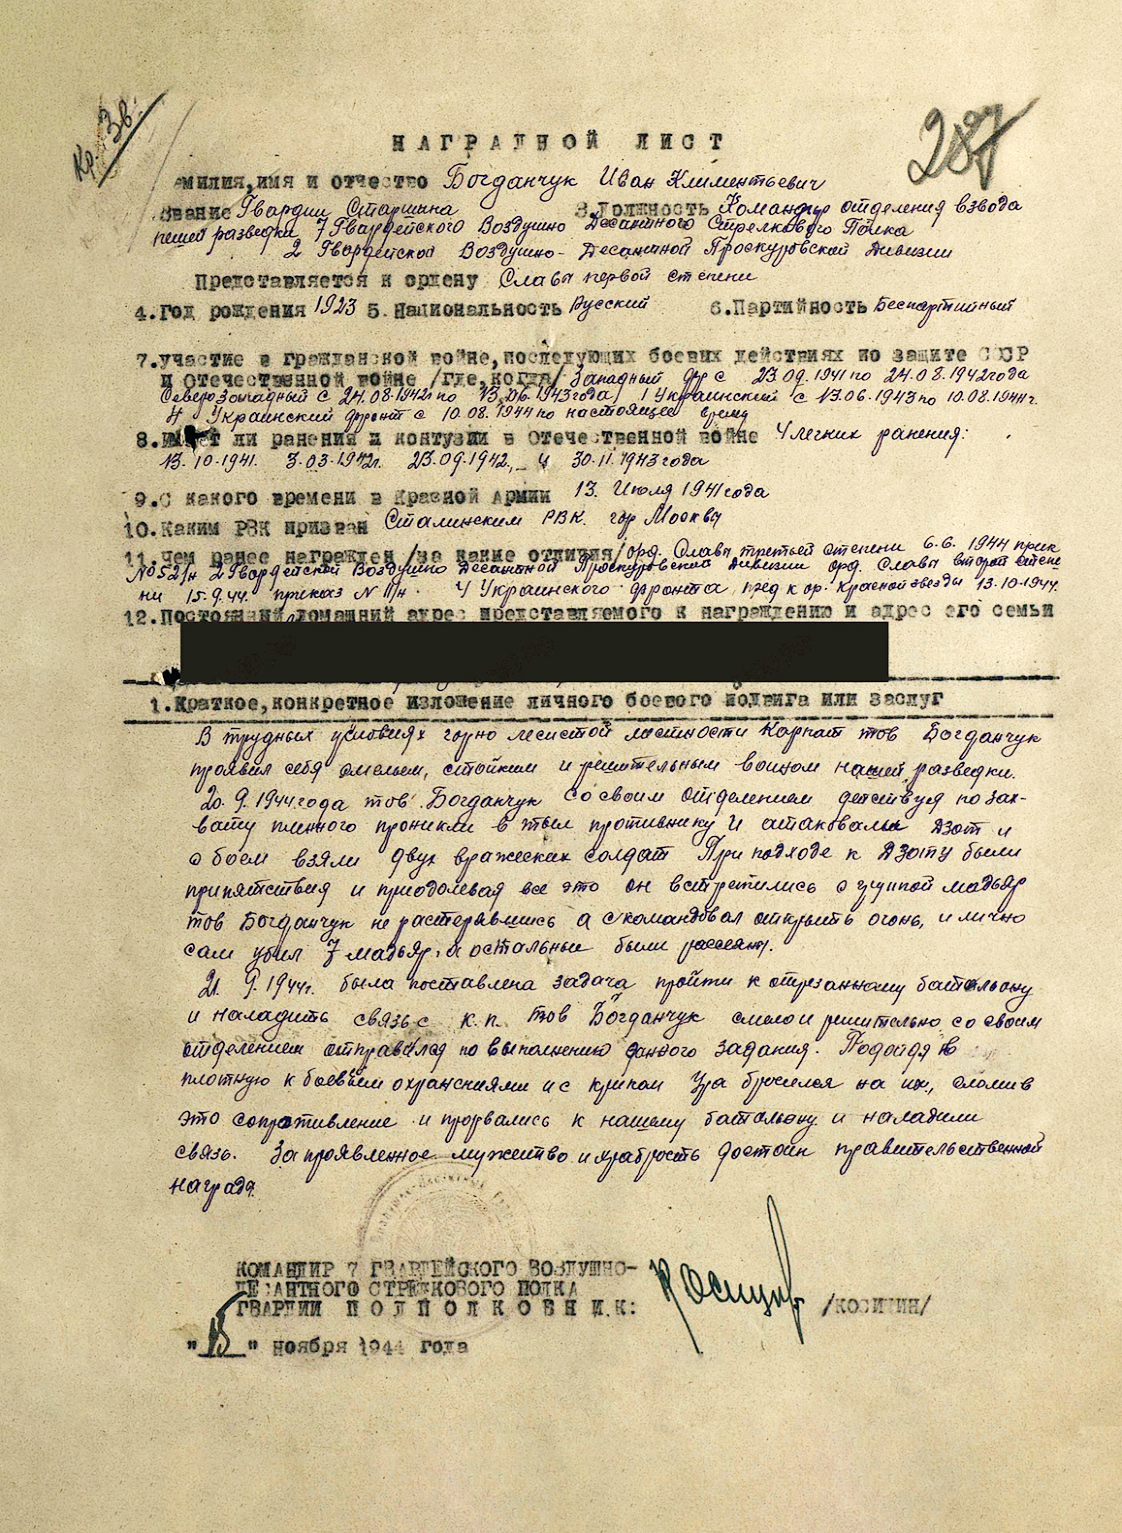 Кр. Зв.
287
НАГРАДНОЙ ЛИСТ
амилия,имя и отчество Богданчук Иван Климентьевич
Звание Гвардии Старшина 3.Должность Командир отделения взвода
пешей разведки 7 Гвардейского Воздушно Десантного Стрелкового Полка
2 Гвардейской Воздушно-Десантной Проскуровской Дивизии
Представляется к ордену Славы первой степени
4.Год рождения 1923 5.Национальность Русский 6.Партийность Беспартийный
7.участие в гражданской войне,последующих боевых действиях по защите СССР
и отечественной войне /где,когда/ Западный фр с 23.09.1941 по 24.08.1942года
Северозападный с 24.08.1942г по 13.06.1943года, 1 Украинский с 13.06-1943 по 10.08.1944г.
4 Украинский фронт с 10.08.1944 по настоящее время
8.Имеет ли ранения и контузии в Отечественной войне 4 легких ранения:
13.10-1941. 3-03-1942г. 23.09.1942., и 30.11.1943года
9.С какого времени в Красной Армии 13. Июля 1941года
10.Каким РВК призван Сталинским РВК. гор Москвы
11.Чем ранее награжден /за какие отличия/ орд. Славы третьей степени 6.6.1944 прик
№052/н 2 Гвардейской Воздушно Десантной Проскуровской Дивизии орд. Славы второй степе
ни 15.9.44. приказ № 11/н. 4 Украинского фронта, пред к ор. Красной звезды 13.10-1944г.
12.Постоянный домашний адрес представляемого к награждению и адрес его семьи
1.Краткое,конкретное изложение личного боевого подвига или заслуг
В трудных условиях горно лесистой местности Карпат тов Богданчук
проявил себя смелым, стойким и решительным воином нашей разведки.
20.9.1944года тов. Богданчук со своим отделением действуя по зах-
вату пленного проникли в тыл противнику и атаковали дзот и
с боем взяли двух вражеских солдат При подходе к дзоту были
припятствия и приодолевая все это он встретились с группой мадьяр
тов Богданчук не растерявшись а скомандовал открыть огонь, и лично
сам убил 7 мадьяр, а остальные были рассеяны.
21.9.1944г. была поставлена задача пройти к отрезанному батальону
и наладить связь с к.п. тов Богданчук смело и решительно со своим
отделением отправился по выполнению данного задания. Подойдя в
плотную к боевым охранениями и с криком Ура бросился на их, сломив
это сопротивление и прорвались к нашему батальону и наладили
связь. За проявленное мужество и храбрость достоин правительственной
награды.
КОМАНДИР 7 ГВАРДЕЙСКОГО ВОЗДУШНО-
ДЕСАНТНОГО СТРЕЛКОВОГО ПОЛКА
ГВАРДИИ ПОДПОЛКОВНИК: /КОСИЦИН/
"15" ноября 1944 года